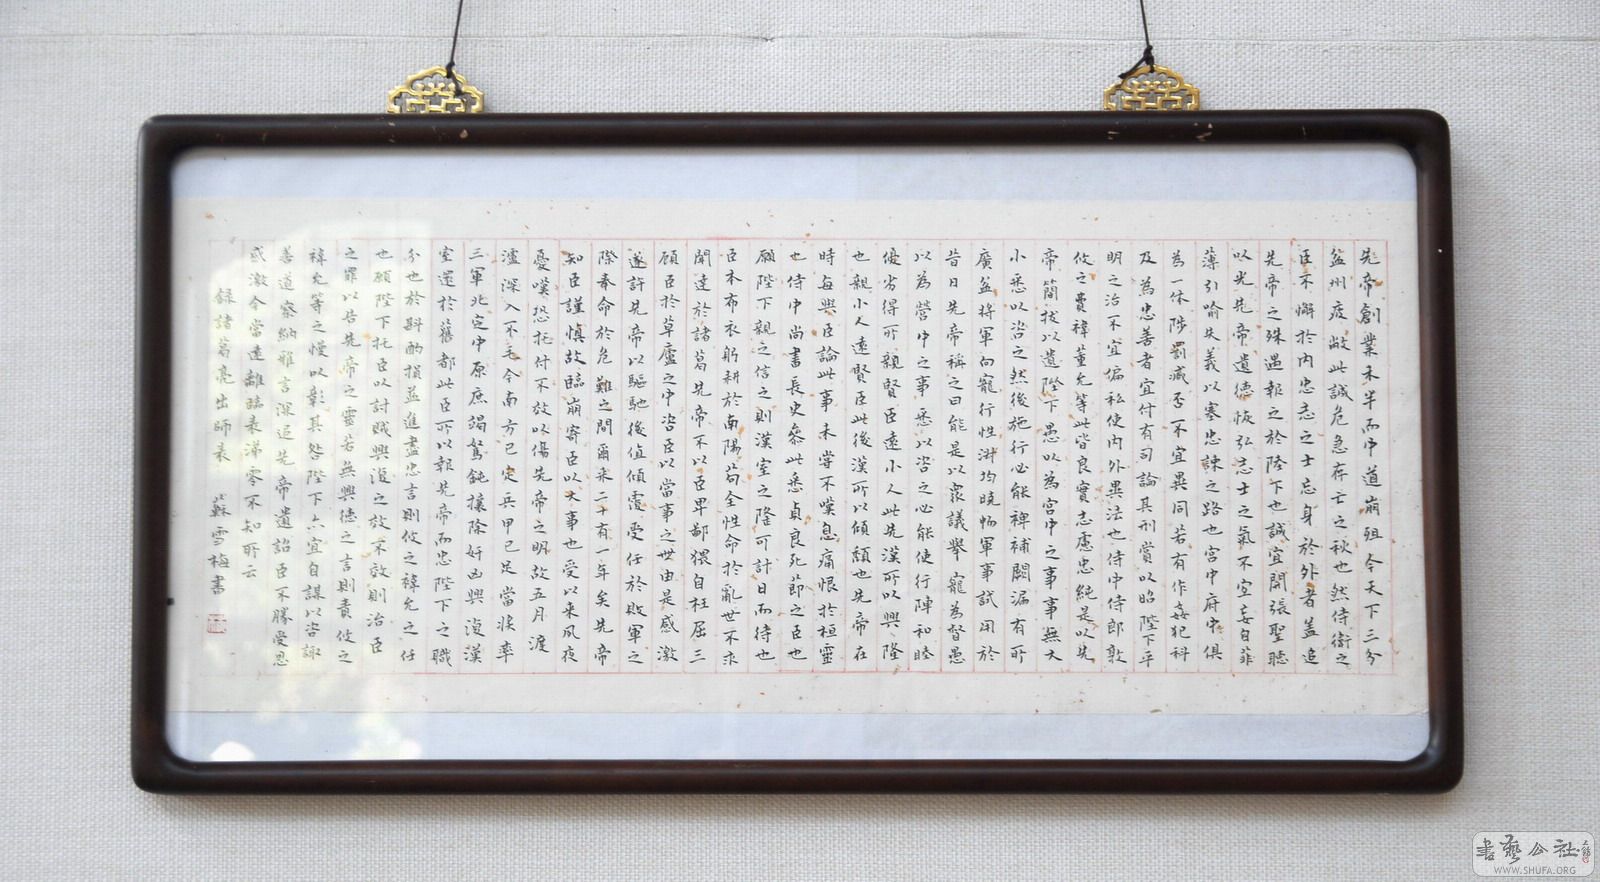 先帝創業未半而中道崩殂今天下三分
益州疲敝此誠危急存亡之秋也然侍衛之
臣不懈於內忠志之士忘身於外者蓋追
先帝之殊遇報之於陛下也誠宜開張聖聽
以光先帝遺德恢弘志士之氣不宜妄自菲
薄引喻失義以塞忠諫之路也宮中府中俱
為一体陟罰臧否不宜異同若有作姦犯科
及為忠善者宜付有司論其刑賞以昭陛下平
明之治不宜偏私使內外異法也侍中侍郎郭
攸之費禕董允等此皆良實志慮忠純是以先
帝簡拔以遺陛下愚以為宮中之事事無大
小悉以咨之然後施行必能裨補闕漏有所
廣益將軍向寵行性淑均曉暢軍事試用於
昔日先帝稱之曰能是以眾議舉寵為督愚
以為營中之事悉以咨之必能使行陣和睦
優劣得所親賢臣遠小人此先漢所以興隆
也親小人遠賢臣此後漢所以傾頹也先帝在
時每與臣論此事未嘗不嘆息痛恨於桓靈
也侍中尚書長史參此悉貞良死節之臣也
願陛下親之信之則漢室之隆可計日而待也
臣本布衣躬耕於南陽苟全性命於亂世不求
聞達於諸葛先帝不以臣卑鄙猥自枉屈三
顧臣於草廬之中咨臣以當事之世由是感激
遂許先帝以驅馳後值傾覆受任於敗軍之
際奉命於危難之間爾來二十有一年矣先帝
知臣謹慎故臨崩寄臣以大事也受以來夙夜
憂嘆恐托付不效以傷先帝之明故五月渡
瀘深入不毛今南方已定兵甲已足當獎率
三軍北定中原庶竭駑鈍攘除奸凶興復漢
室還於舊都此臣所以報先帝而忠陛下之職
分也於斟酌損益進盡忠言則攸之禕允之任
也願陛下托臣以討賊興復之效不效則治臣
之罪以告先帝之靈若無興德之言則責攸之
禕允等之慢以彰其咎陛下亦宜自謀以咨諏
善道察納雅言深追先帝遺詔臣不勝受恩
感激今當遠離臨表涕零不知所云
錄諸葛亮出師表 蘇雪梅書
書藝公社
WWW.SHUFA.ORG